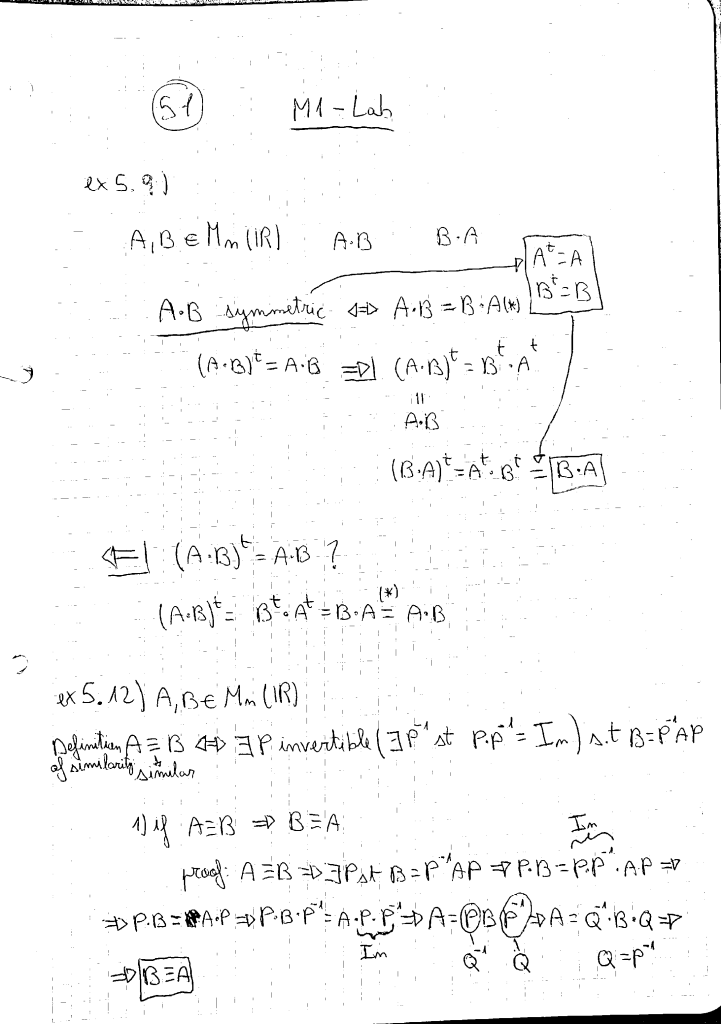 S1 M1-Lab
ex 5.9)
A,B ∈ Mn(IR) A·B B·A
A^t=A
B^t=B
A·B symmetric ⇔ A·B = B·A(*)
(A·B)^t = A·B ⇒| (A·B)^t = B^t·A^t
||
A·B
(B·A)^t = A^t·B^t = B·A
⇐| (A·B)^t = A·B ?
(A·B)^t = B^t·A^t = B·A (*)= A·B
ex 5.12) A,B ∈ Mn(IR)
Definition A ≡ B ⇔ ∃P invertible (∃P^-1 st P·P^-1 = In) s.t B=P^-1AP
of similarity similar
1) if A≡B ⇒ B≡A
In
proof: A≡B ⇒ ∃P st B=P^-1AP ⇒ P·B = P·P^-1·AP ⇒
⇒ P·B = A·P ⇒ P·B·P^-1 = A·P·P^-1 ⇒ A = PBP^-1 ⇒ A = Q^-1·B·Q ⇒
In Q^-1 Q Q=P^-1
⇒ B≡A